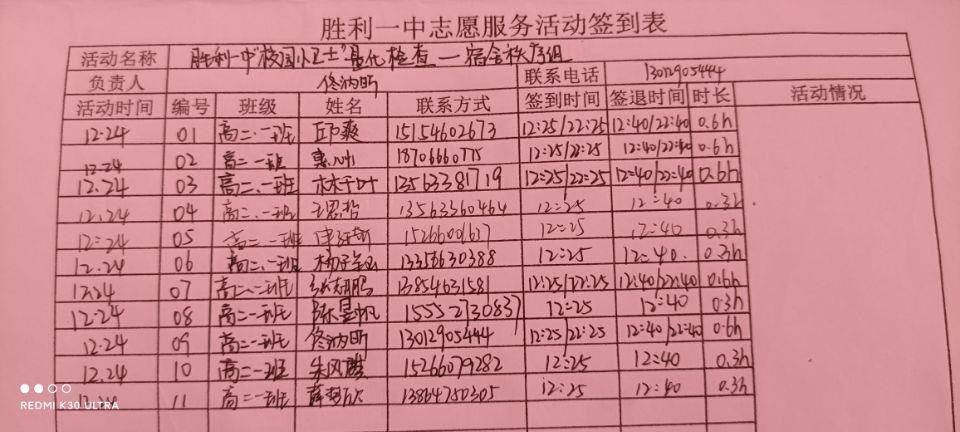 胜利一中志愿服务活动签到表
活动名称 胜利一中"校园小卫士"量化检查—宿舍秩序组
负责人 佟汭昕 联系电话 13012905444
活动时间 编号 班级 姓名 联系方式 签到时间 签退时间 时长 活动情况
12.24 01 高二.一班 邱爽 15154602673 12:25/22:25 12:40/22:40 0.6h
12.24 02 高二一班 18706660775 12:25/22:25 12:40/22:40 0.6h
12.24 03 高二.一班 林千叶 13563381719 12:25/22:25 12:40/22:40 0.6h
12.24 04 高二.一班 王思哲 13563360464 12:25 12:40 0.3h
12:24 05 高二.一班 15266001617 12:25 12:40 0.3h
12.24 06 高二.一班 13356630388 12:25 12:40. 0.3h
12.24 07 高二.一班 13854631581 12:25/22:25 12:40/22:40 0.6h
12.24 08 高二一班 15552730837 12:25 12:40 0.3h
12.24 09 高二一班 佟汭昕 13012905444 12:25/22:25 12:40/22:40 0.6h
12.24 10 高二一班 朱风麟 15266079282 12:25 12:40 0.3h
12.24 11 高二一班 13864750305 12:25 12:40 0.3h
REDMI K30 ULTRA